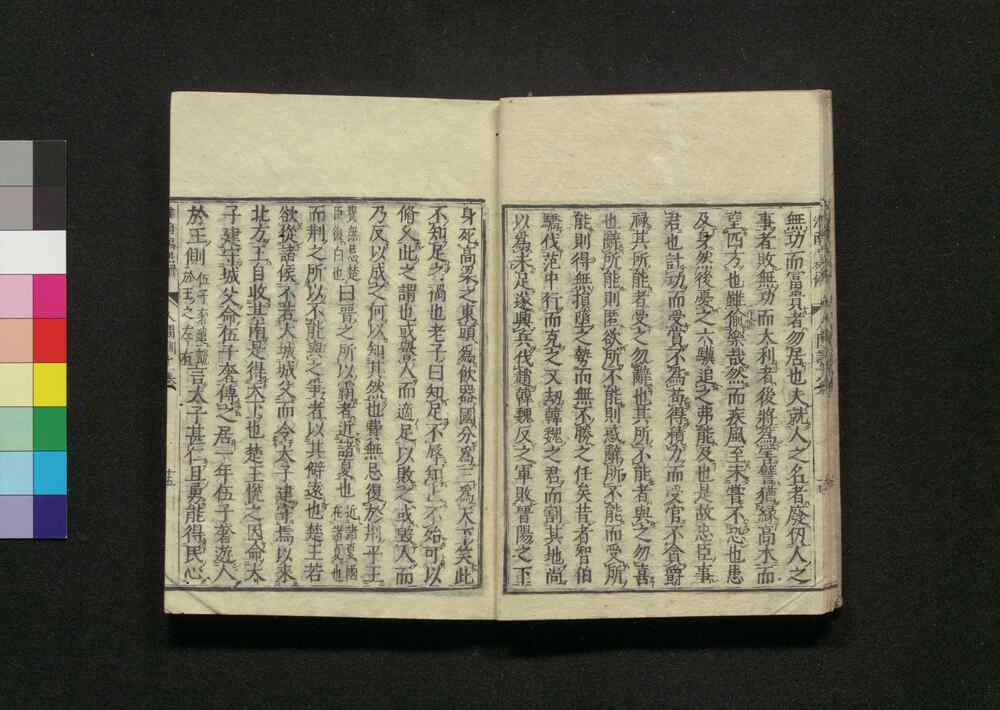 無功而富貴者勿居也夫就人之名者廢仗人之
事者敗無功而大利者後將爲害譬猶緣高木而
望四方也雖偷樂哉然而疾風至未嘗不恐也患
及身然後憂之六驥追之弗能及也是故忠臣事
君也計功而受賞不爲苟得積力而受官不貪爵
祿其所能者受之勿辭也其所不能者與之勿喜
也辭所能則匿欲所不能則惑辭所不能而受所
能則得無損墮之勢而無不勝之任矣昔者智伯
驕伐范中行而克之又劫韓魏之君而割其地尚
以爲未足遂興兵伐趙韓魏反之軍敗晉陽之下
身死高梁之東頭爲飲器國分爲三爲天下笑此
不知足之禍也老子曰知足不辱知止不殆可以
脩久此之謂也或譽人而適足以敗之或毀人而
乃反以成之何以知其然也費無忌復於荆平王
費無忌楚
臣復白也
曰晉之所以霸者近諸夏也
近諸夏國
在諸夏也
而荆之所以不能與之爭者以其僻遠也楚王若
欲從諸侯不若大城城父而令太子建守焉以來
北方王自收其南是得天下也楚王悅之因命太
子建守城父命伍子奢傅之居一年伍子奢遊人
於王側
於王之左右
言太子甚仁且勇能得民心